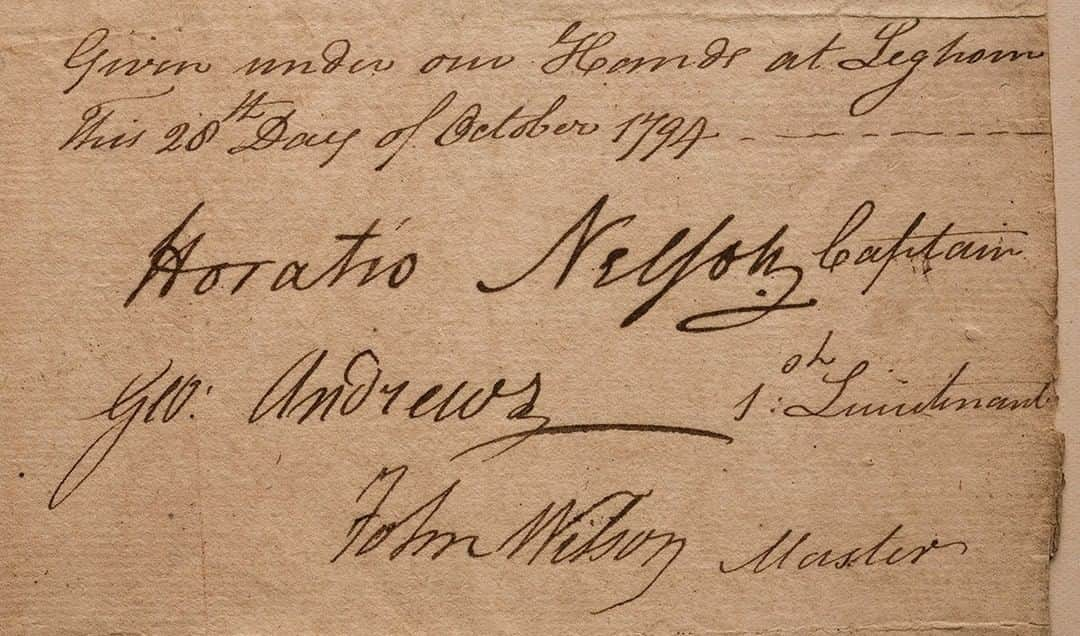 Given under our Hands at Leghorn
This 28th Day of October 1794
Horatio Nelson Captain
Geo: Andrews 1st: Lieutenant
John Wilson Master